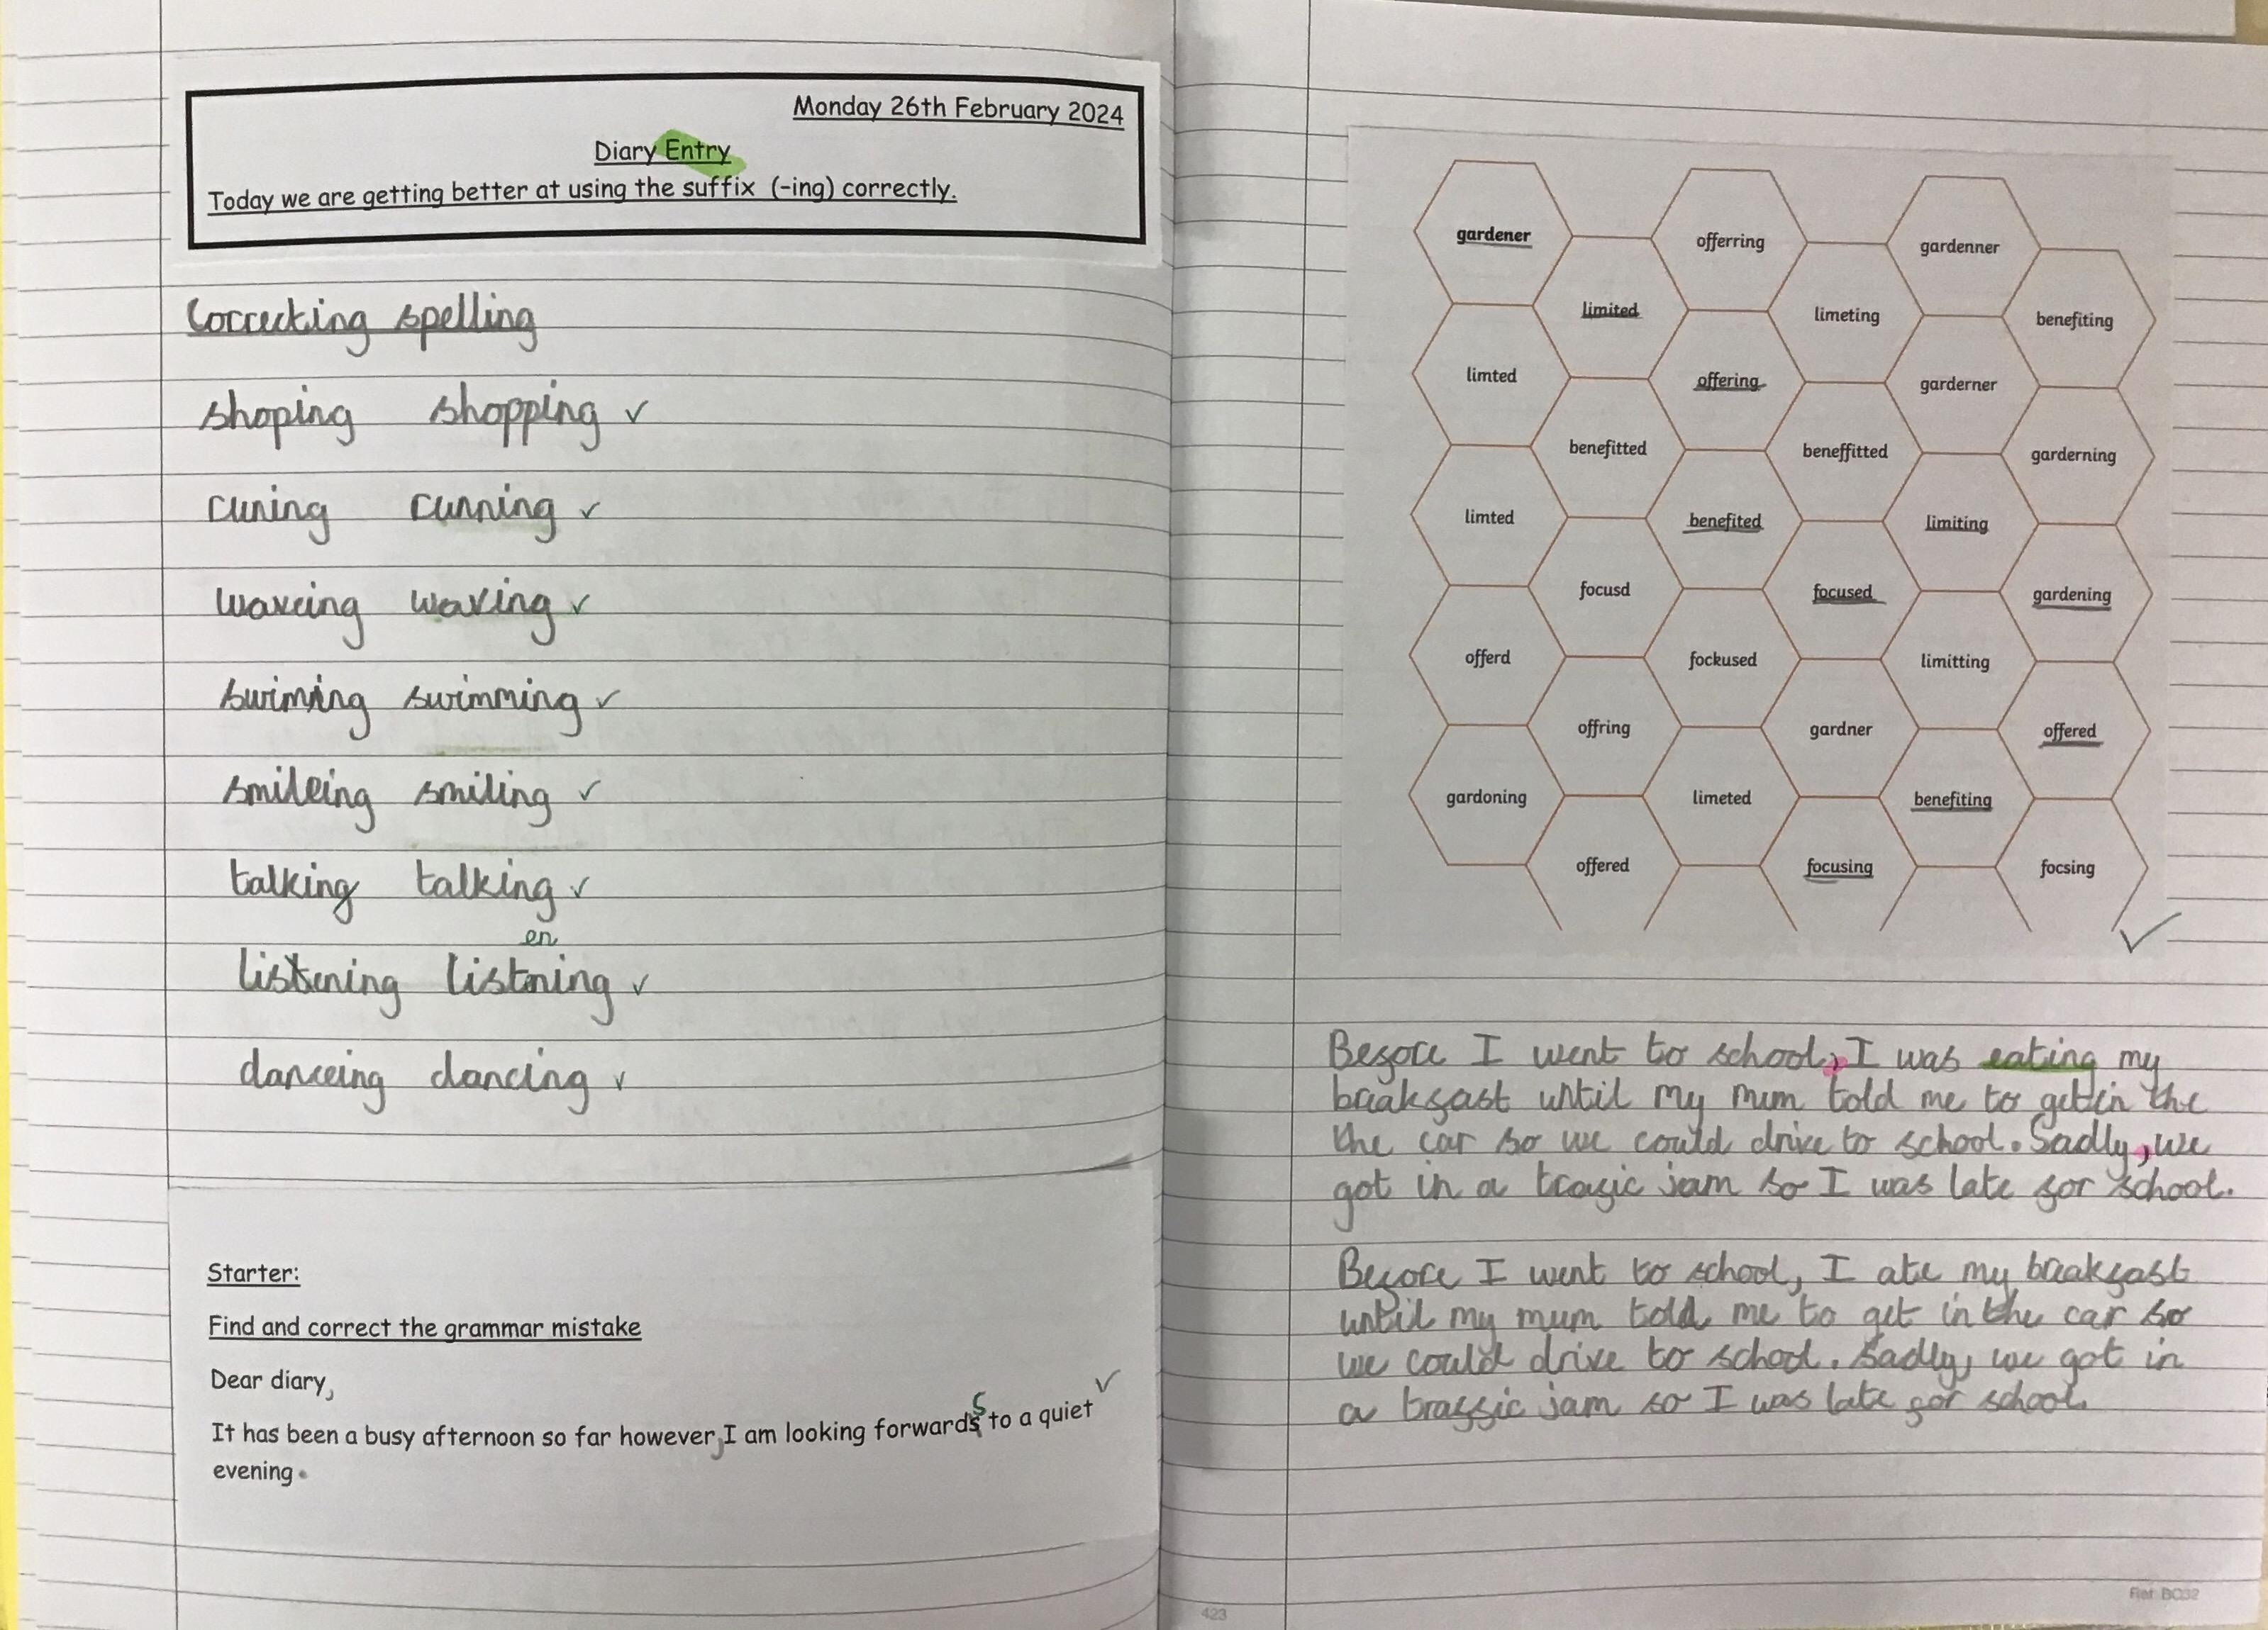 Monday 26th February 2024
Diary Entry
Today we are getting better at using the suffix (-ing) correctly.
Correcting spelling
shoping shopping ✓
runing running ✓
waveing waving ✓
swiming swimming ✓
smileing smiling ✓
talking talking ✓
en
listening listning ✓
danceing dancing ✓
Starter:
Find and correct the grammar mistake
Dear diary,
It has been a busy afternoon so far however, I am looking forwards to a quiet ✓
s
evening.
gardener
offerring
gardenner
limited
limeting
benefiting
limted
offering
garderner
benefitted
beneffitted
garderning
limted
benefited
limiting
focusd
focused
gardening
offerd
fockused
limitting
offring
gardner
offered
gardoning
limeted
benefiting
offered
focusing
focsing
✓
Before I went to school, I was eating my
breakfast until my mum told me to get in the
the car so we could drive to school. Sadly, we
got in a trafic jam so I was late for school.
Before I went to school, I ate my breakfast
until my mum told me to get in the car so
we could drive to school. Sadly, we got in
a traffic jam so I was late for school.
423
Ref: BC32